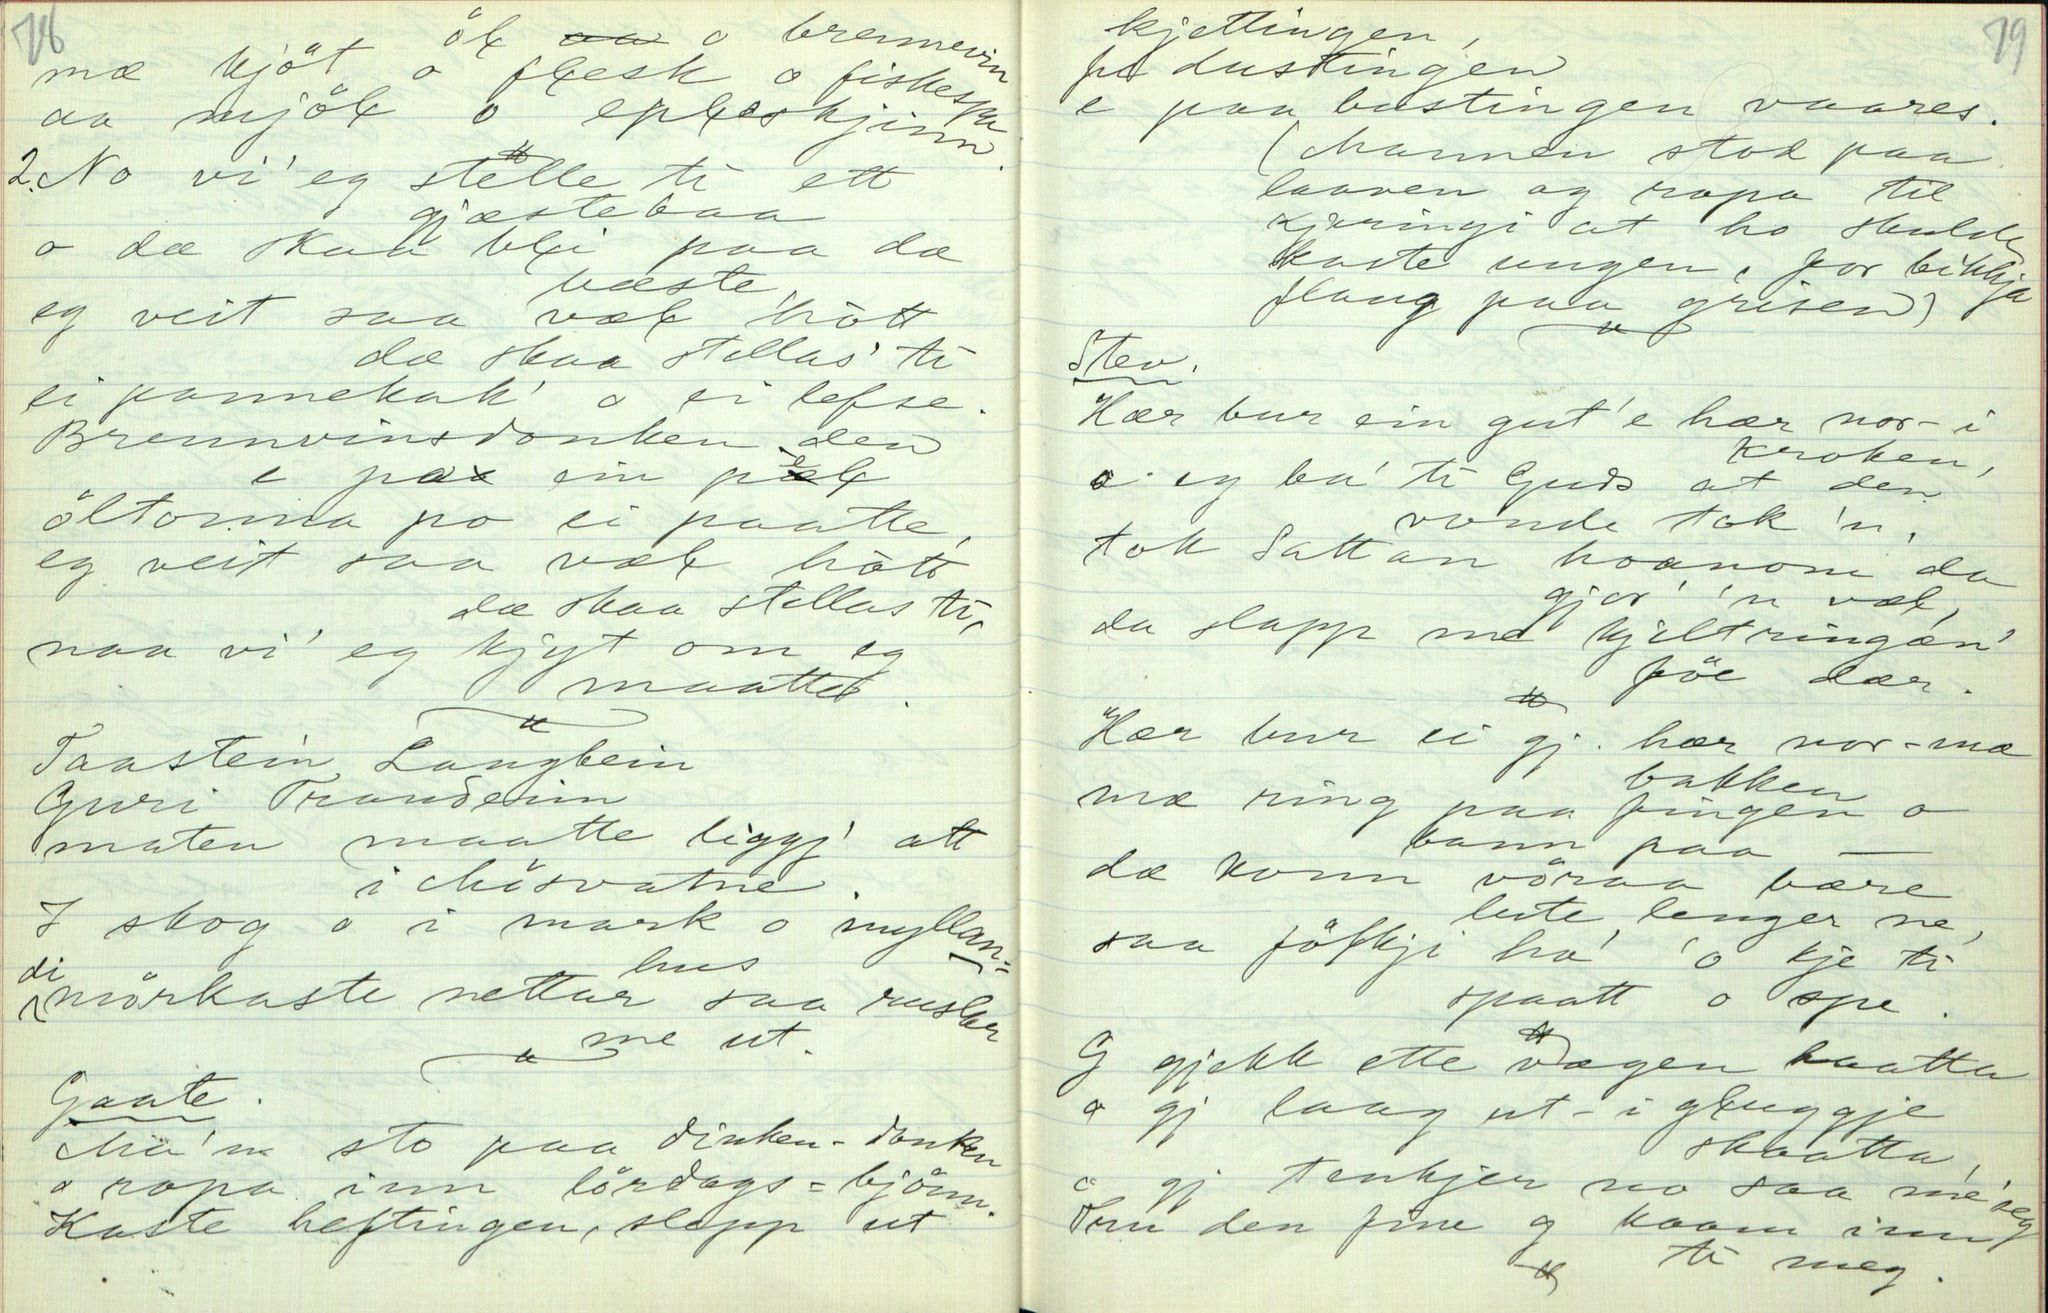 78
öł o brennevin
mæ kjöt o fłesk o fiskespa
aa mjöł o epłeskjinn.
2. No vi' eg stelle ti ett
gjæstebaa
o dæ skaa błi paa dæ
bæste,
eg veit saa væł hòtt
dæ skaa stellas' ti
ei pannekak' o ei lefse.
Brennvinsdonken den
e paa ein pæł
öltonna po ei paatte,
eg veit saa væł hòtt
dæ skaa stellas ti,
naa vi' eg kjyt om eg
maatte.
Taastein Langbein
Guri Trondeim
maten maatte liggj' att
i Mösvatne.
I skog o i mark o myllan=
hus
di mörkaste nettar saa rusker
me ut.
Gaate.
Ma'n sto paa dinken-donken
o ropa inn lördags=bjönn.
Kaste heftingen, slepp ut
79
kjettingen,
for dustingen
e paa bustingen vaares.
(Mannen stod paa
laaven og ropa til
kjæringi at ho skulde
kaste ungen, for bikkja
flaug paa grisen)
Stev.
Hær bur ein gut'e hær nor-i
kroken,
o eg ba' ti Guds at den
vonde tok 'n,
tok Sattan hoanom da
gjor' 'n væł,
da slapp me kjeltringen'
föe dær.
Hær bur ei gj. hær nor-mæ
bakken
mæ ring paa fingen o
bann paa —
dæ konn vöraa bære
lite lenger ne,
saa föłkji ha' 'o kje ti
spaatt o spe.
G gjekk ette vægen baatta
o gj laag ut-i gługgje
skaatta,
o gj tenkjer no saa me' seg
Tru den fine g kaam inn
ti meg.